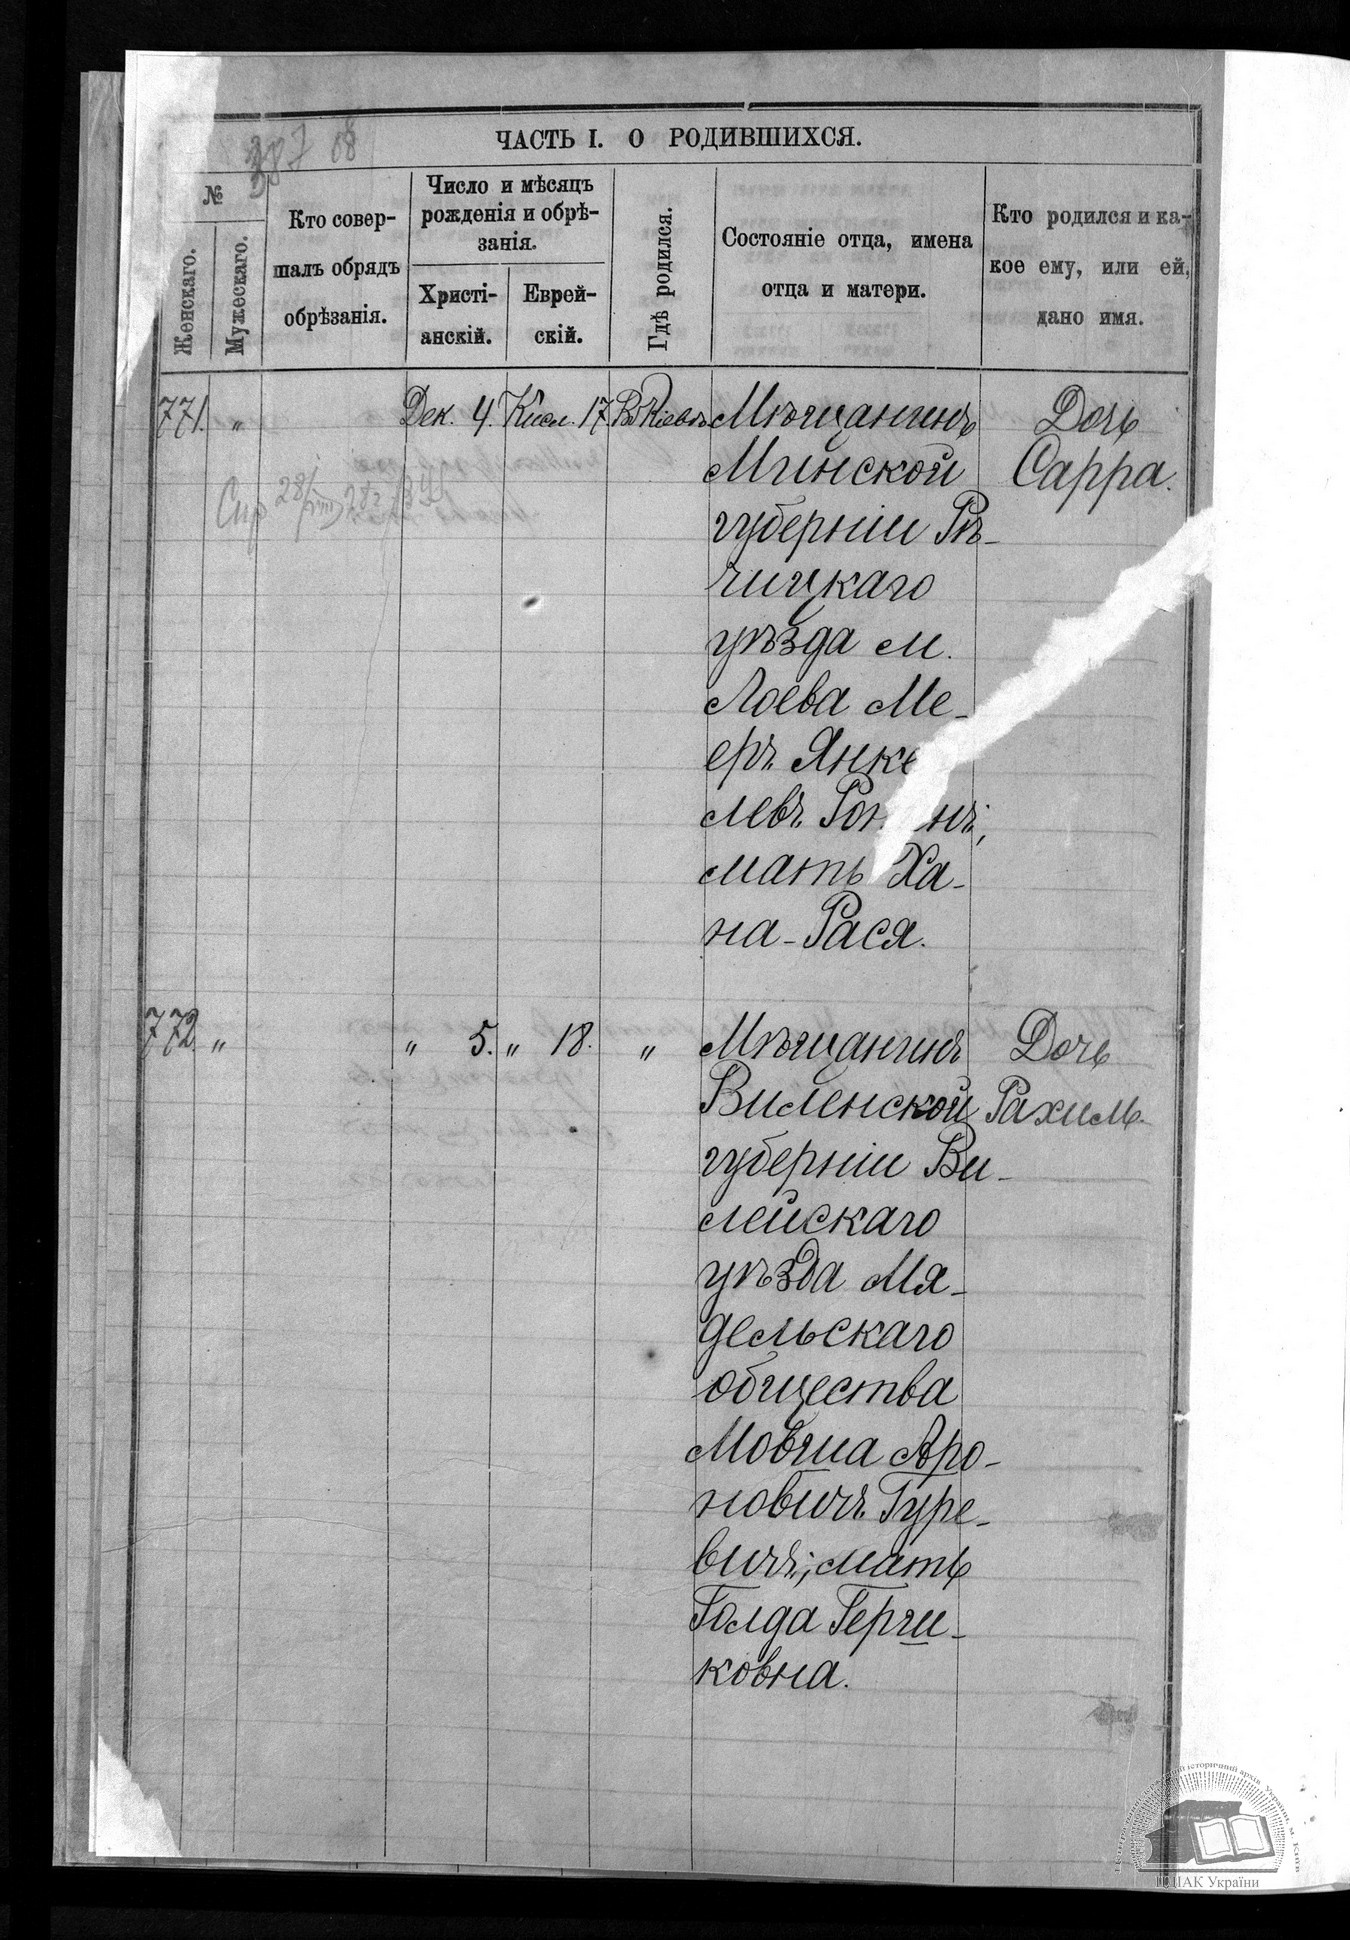 387 08
ЧАСТЬ I. О РОДИВШИХСЯ.
№
Женскаго.
Мужескаго.
Кто совер-
шалъ обрядъ
обрѣзанія.
Число и мѣсяцъ
рожденія и обрѣ-
занія.
Христі-
анскій.
Еврей-
скій.
Гдѣ родился.
Состояніе отца, имена
отца и матери.
Кто родился и ка-
кое ему, или ей,
дано имя.
771. „ Дек. 4. Кисл. 17 Въ Кіевѣ Мѣщанинъ Дочь
Минской Сарра.
губерніи Рѣ-
чицкаго
уѣзда м.
Лоева Ме-
еръ Янке
левъ
мать Ха-
на-Рася.
Спр 28/VIII
772. „ „ 5. „ 18. „ Мѣщанинъ Дочь
Виленской Рахиль.
губерніи Ви-
лейскаго
уѣзда Мя-
дельскаго
общества
Мовша Аро-
новичъ Гуре-
вичъ; мать
Голда Герш-
ковна.
ЦДІАК України